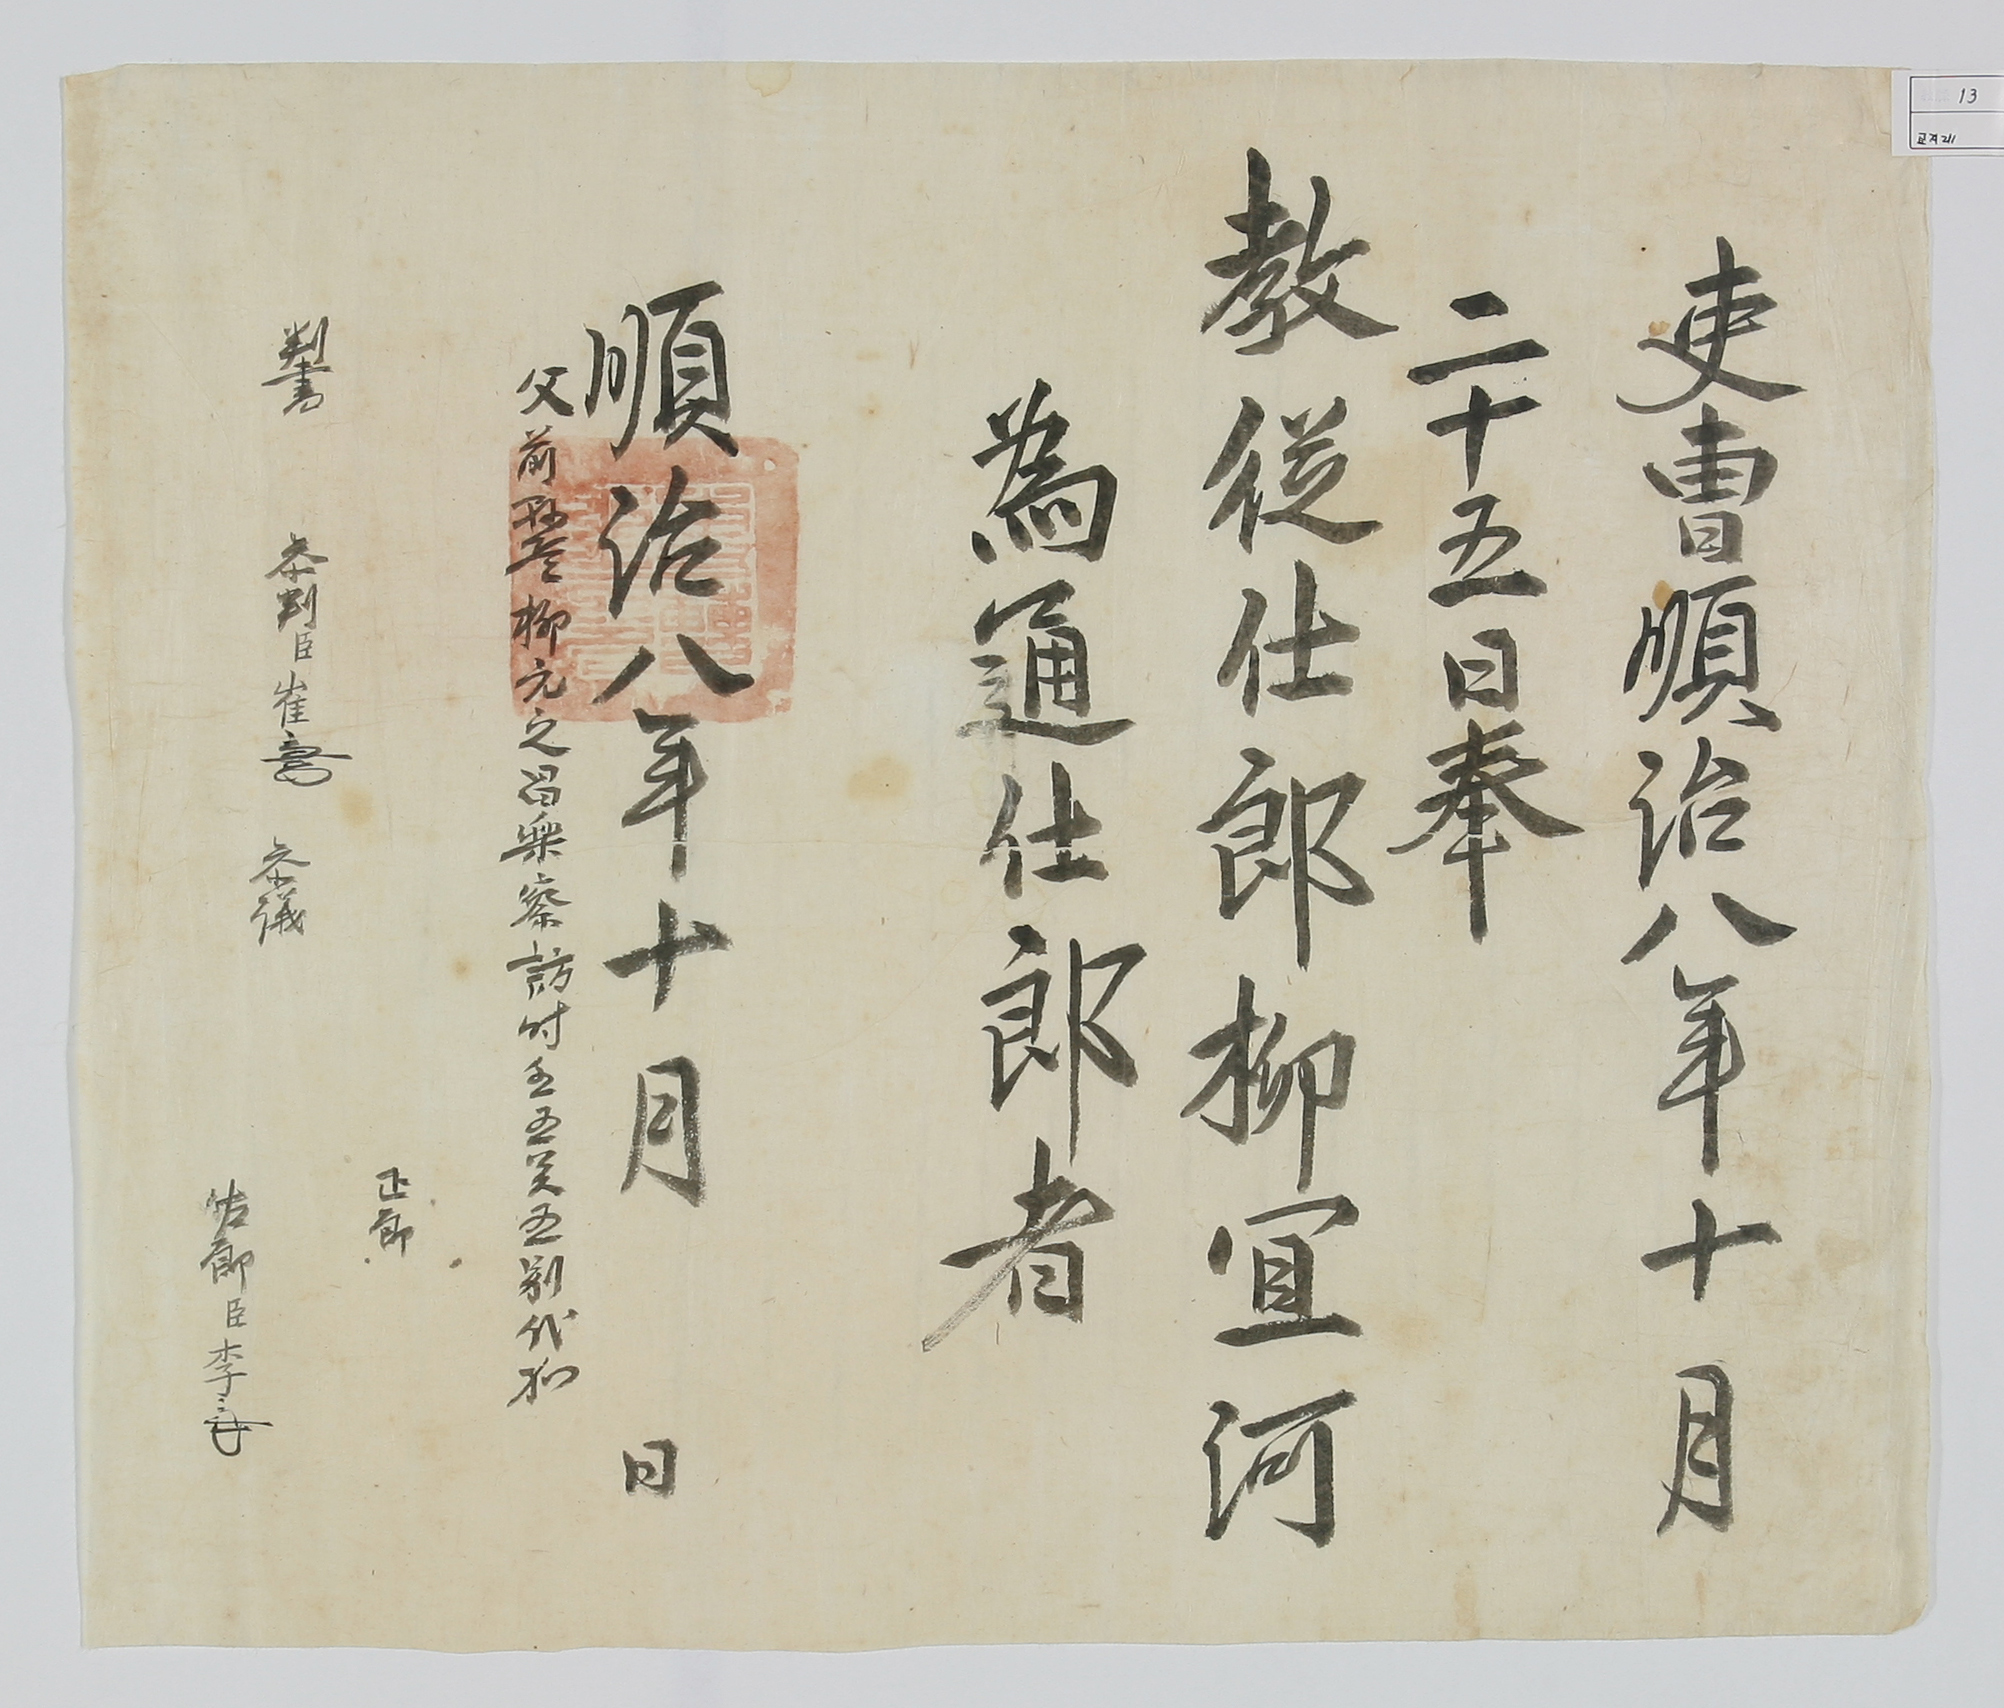 吏曹順治八年十月
二十五日奉
教從仕郎柳宜河
為通仕郎者
順治八年十月 日
父前柳元之昌樂察訪時壬五癸五別代加
正郎
判書 參判臣崔 參議
佐郎臣李
13
교지211